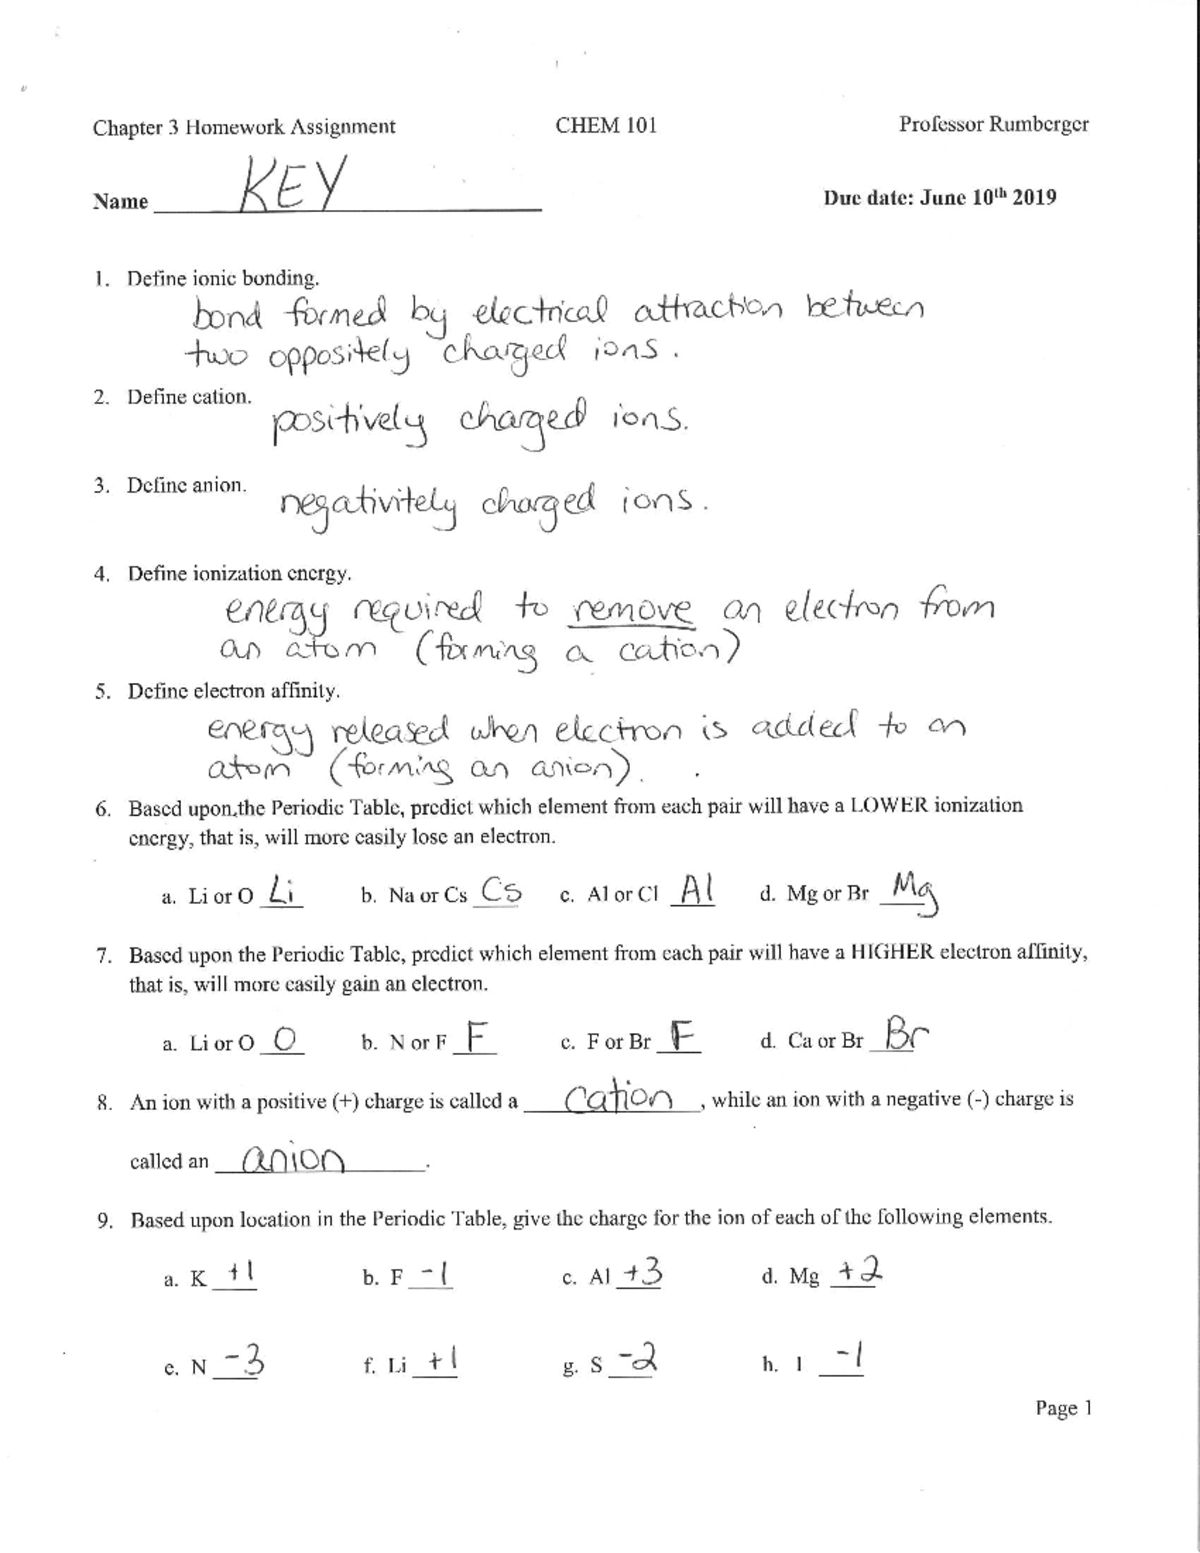 Chapter 3 Homework Assignment CHEM 101 Professor Rumberger
Name KEY Due date: June 10th 2019
1. Define ionic bonding.
bond formed by electrical attraction between
two oppositely charged ions.
2. Define cation.
positively charged ions.
3. Define anion.
negativitely charged ions.
4. Define ionization energy.
energy required to remove an electron from
an atom (forming a cation)
5. Define electron affinity.
energy released when electron is added to an
atom (forming an anion).
6. Based upon the Periodic Table, predict which element from each pair will have a LOWER ionization
energy, that is, will more easily lose an electron.
a. Li or O Li b. Na or Cs Cs c. Al or Cl Al d. Mg or Br Mg
7. Based upon the Periodic Table, predict which element from each pair will have a HIGHER electron affinity,
that is, will more easily gain an electron.
a. Li or O O b. N or F F c. F or Br F d. Ca or Br Br
8. An ion with a positive (+) charge is called a cation, while an ion with a negative (-) charge is
called an anion.
9. Based upon location in the Periodic Table, give the charge for the ion of each of the following elements.
a. K +1 b. F -1 c. Al +3 d. Mg +2
e. N -3 f. Li +1 g. S -2 h. I -1
Page 1